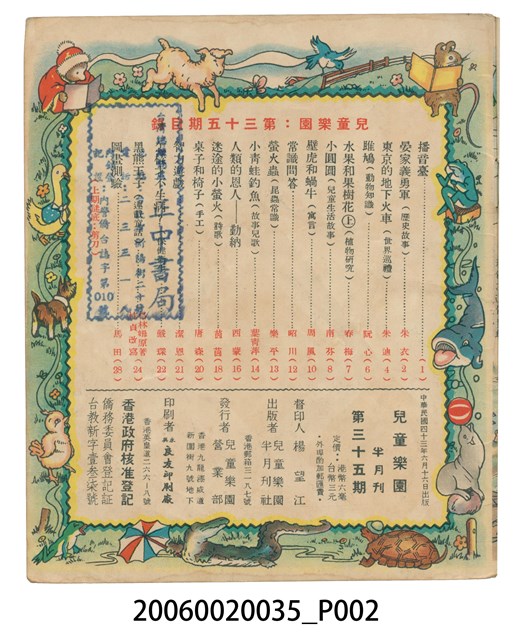 兒童樂園：第三十五期目錄
播音臺 (1)
晏家義勇軍（歷史故事） 朱衣(2)
東京的地下火車（世界巡禮） 朱迪(4)
雎鳩（動物知識） 阮心(6)
水果和果樹花(上)（植物研究） 春梅(7)
小圓圓（兒童生活故事） 南芬(8)
壁虎和蝸牛（寓言） 周風(10)
常識問答 昭川(12)
螢火蟲（昆蟲常識） 樂平(13)
小青蛙釣魚（故事兒歌） 葉青萍(14)
人類的恩人——勤納 西蒙(16)
迷途的小螢火（詩歌） 茵茵(18)
桌子和椅子（手工） 唐森(20)
潔恩(21)
蘇蝶(22)
(24)
馬田(28)
台灣
平中書局
010
兒童樂園
半月刊
第三十五期
定價：港幣六毫
台幣三元
外埠酌加郵運費
中華民國四十三年六月十六日出版
督印人 楊望江
出版者 兒童樂園半月刊社
香港郵箱三一八七號
發行者 兒童樂園營業部
香港九龍漆咸道
新圍街九號地下
印刷者 良友印刷廠
香港英皇道二六六一八號
香港政府核准登記
僑務委員會登記証
台教新字壹叁柒號
20060020035_P002